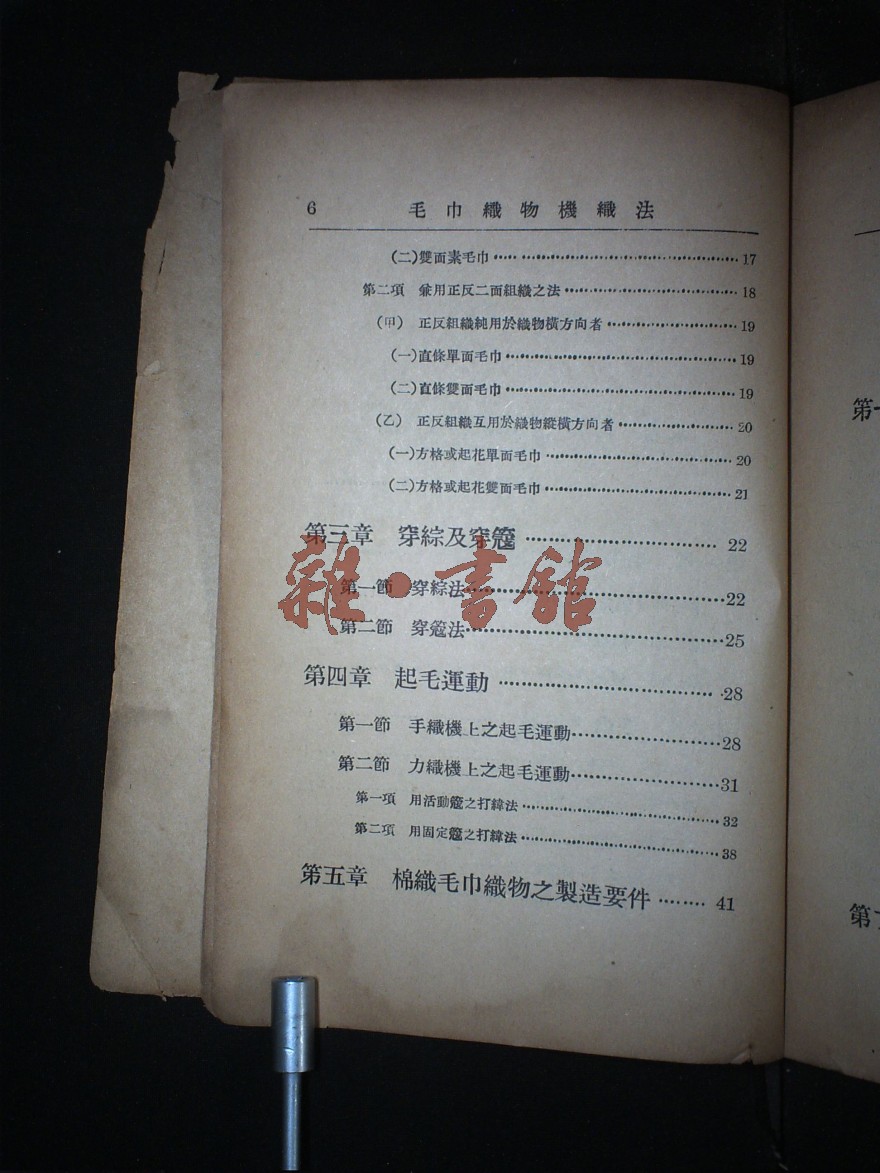 6 毛巾織物機織法
(二)雙面素毛巾………………17
第二項 兼用正反二面組織之法………………18
(甲) 正反組織純用於織物橫方向者………………19
(一)直條單面毛巾………………19
(二)直條雙面毛巾………………19
(乙) 正反組織互用於織物縱橫方向者………………20
(一)方格或起花單面毛巾………………20
(二)方格或起花雙面毛巾………………21
第三章 穿綜及穿簆………………22
第一節 穿綜法………………22
第二節 穿簆法………………25
第四章 起毛運動………………28
第一節 手織機上之起毛運動………………28
第二節 力織機上之起毛運動………………31
第一項 用活動簆之打緯法………………32
第二項 用固定簆之打緯法………………38
第五章 棉織毛巾織物之製造要件………41
雜·書館
第
第